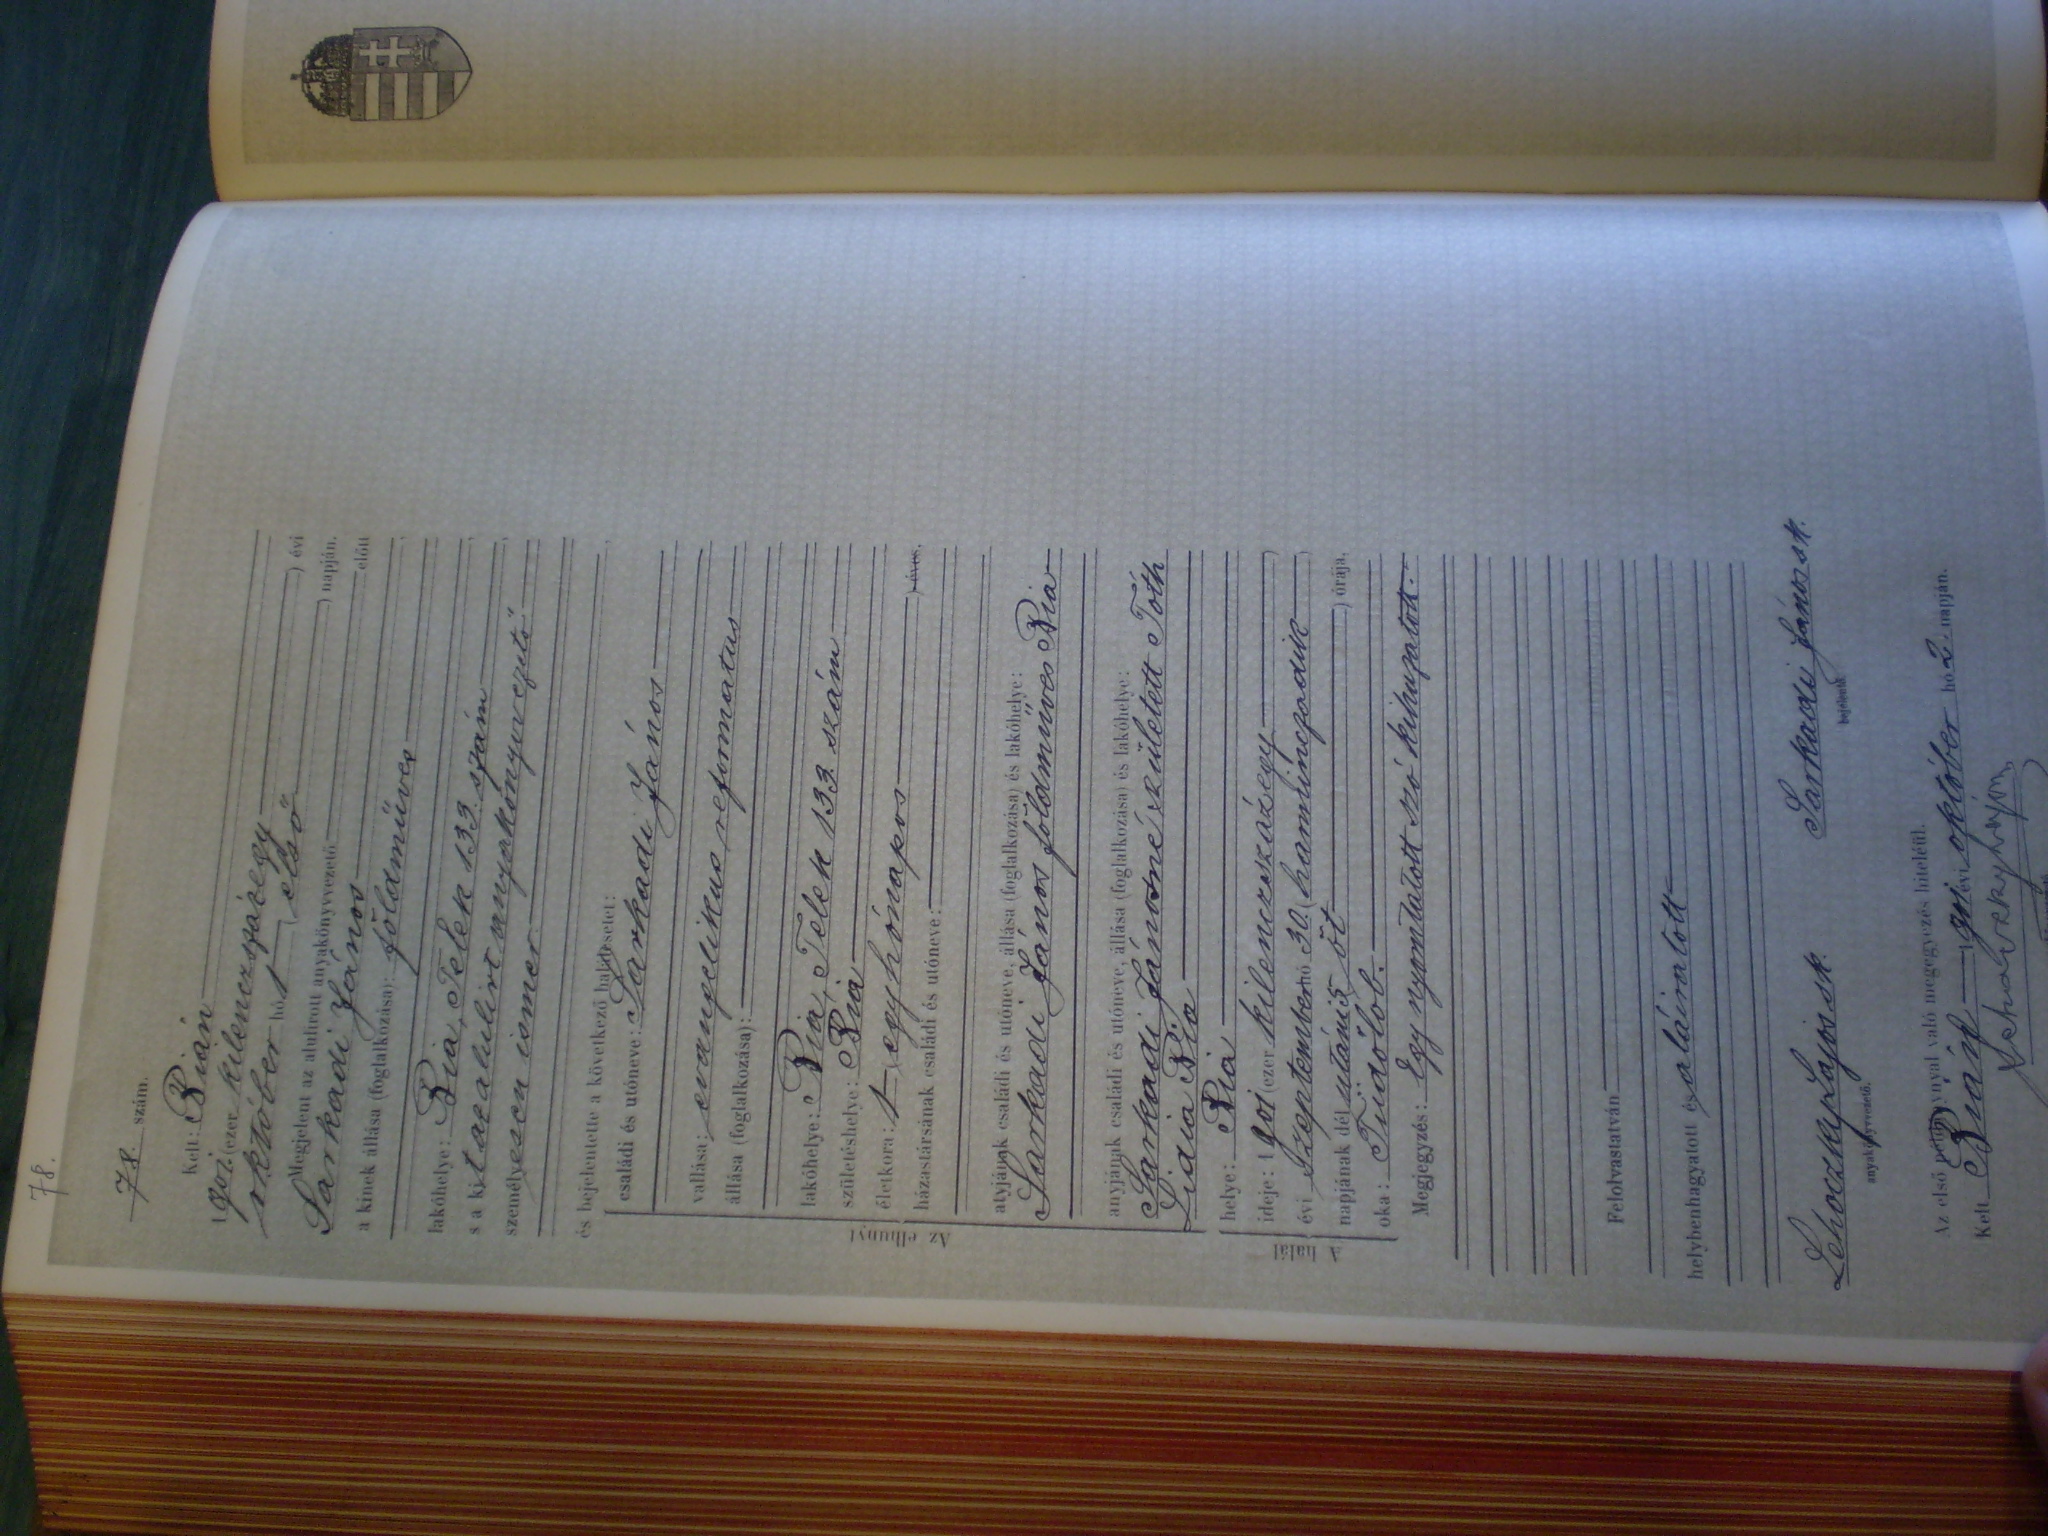 78.
78. szám.
Kelt: Bián
1901. (ezer kilenczszázegy) évi
október hó 1 (első) napján.
Megjelent az alulirott anyakönyvezető előtt
Sarkadi János
a kinek állása (foglalkozása): földmüves,
lakóhelye: Bia, Telek 133. szám,
s a kit az alulirt anyakönyvvezető
személyesen ismer
és bejelentette a következő halálesetet:
Az elhunyt
családi és utóneve: Sarkadi János
vallása: evangelikus reformatus
állása (foglalkozása):
lakóhelye: Bia, Telek 133 szám
születéshelye: Bia
életkora: 1 (egy hónapos) éves,
házastársának családi és utóneve:
atyjának családi és utóneve, állása (foglalkozása) és lakóhelye:
Sarkadi János földmüves Bia
anyjának családi és utóneve, állása (foglalkozása) és lakóhelye:
Sarkadi Jánosné született Tóth
Lidia Bia
A halál
helye: Bia
ideje: 1901 (ezer kilenczszázegy)
évi Szeptember hó 30. (harminczadik)
napjának dél utáni 5 (öt) órája,
oka: Tüdőlob.
Megjegyzés: Egy nyomtatott szó kihuzatott.
Felolvastatván
helybenhagyatott és aláiratott
Lehoczky Lajos sk. Sarkadi János sk.
anyakönyvvezető. bejelentő.
Az első példánynyal való megegyezés hiteléül.
Kelt Bián 1901 évi október hó 2. napján.